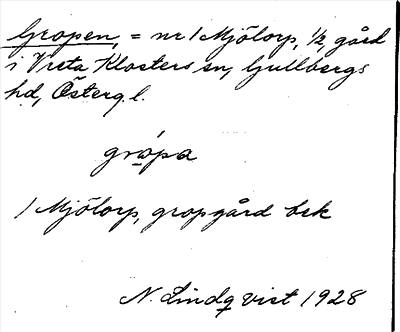 Gropen, = nr 1 Mjölorp, 1/2, gård
i Vreta Klosters sn, Gullbergs
hd, Östergl.
grópa
1 Mjölorp, gropgård bsk
N. Lindqvist 1928